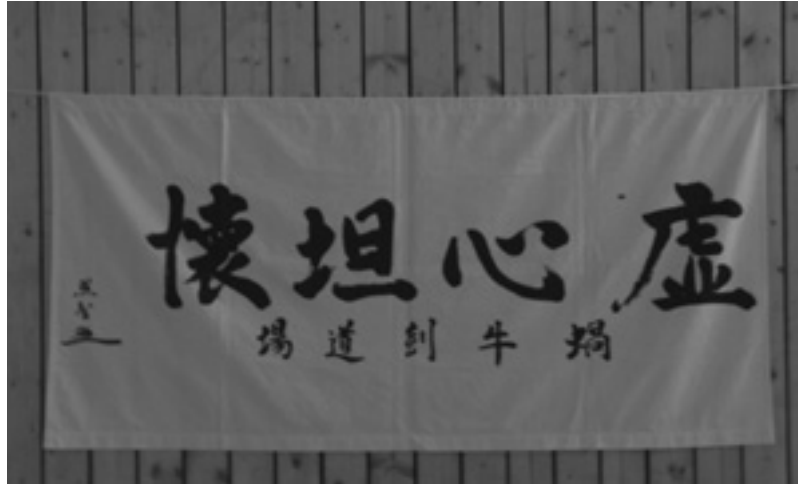 虚心坦懐
蝸牛剣道場